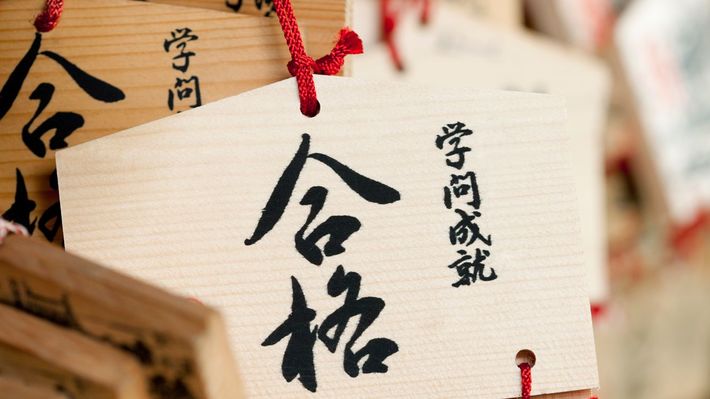 学問成就
合格
学問
合格